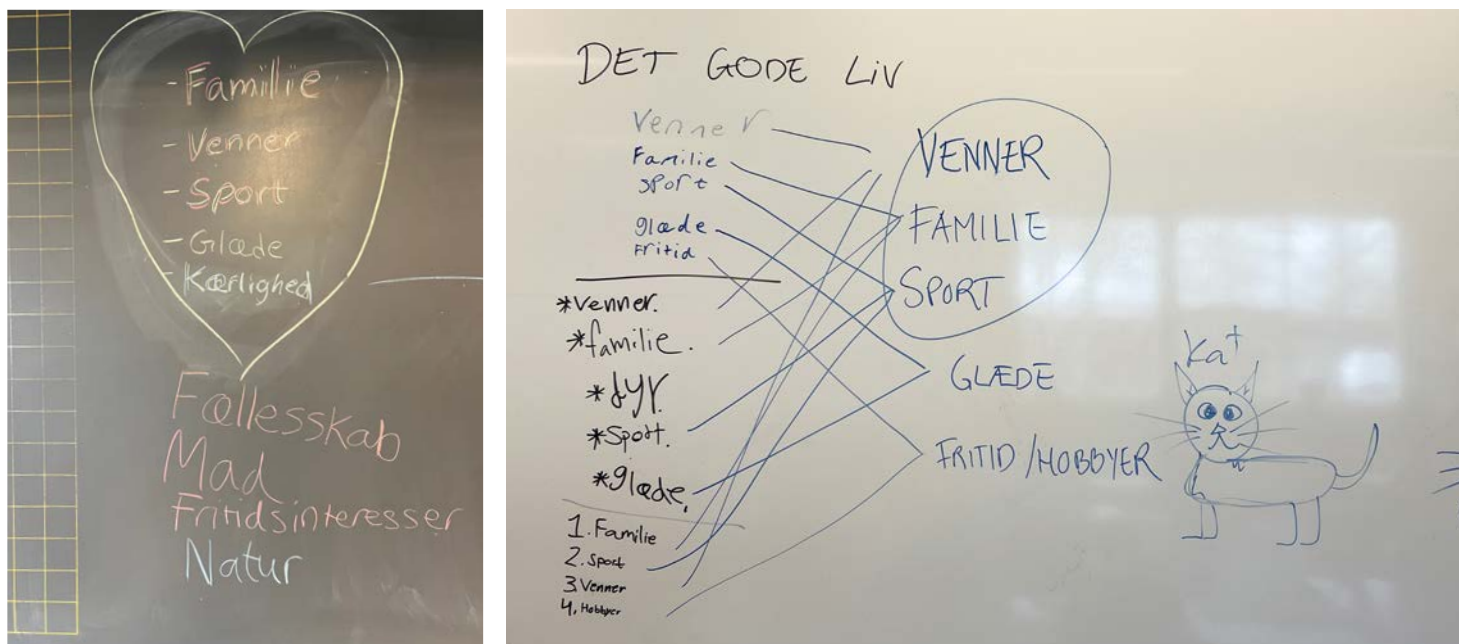 - Familie
- Venner
- Sport
- Glæde
- Kærlighed
Fællesskab
Mad
Fritidsinteresser
Natur
DET GODE LiV
Venner
Familie
sport
glæde
Fritid
*venner.
*familie.
*dyr.
*Sport.
*glæde.
1. Familie
2. Sport
3. Venner
4. Hobbyer
VENNER
FAMILIE
SPORT
GLÆDE
FRITID/HOBBYER
Kat